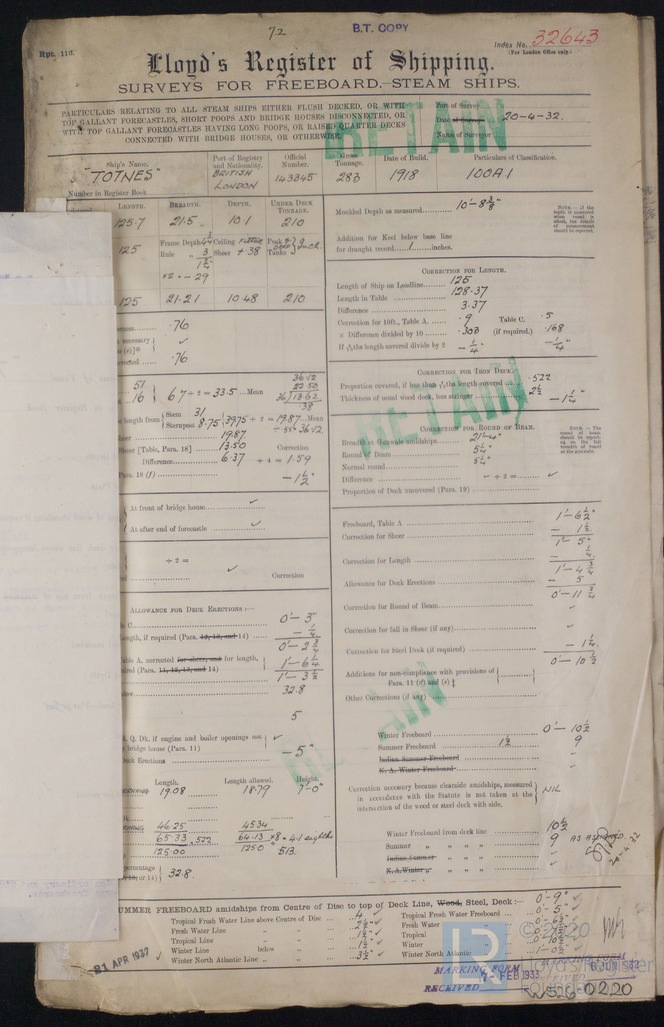 72
B.T. COPY
Index No. 32643
(For London Office only.)
Rpt. 110.
Lloyd's Register of Shipping.
SURVEYS FOR FREEBOARD.—STEAM SHIPS.
PARTICULARS RELATING TO ALL STEAM SHIPS EITHER FLUSH DECKED, OR WITH
TOP GALLANT FORECASTLES, SHORT POOPS AND BRIDGE HOUSES DISCONNECTED, OR
WITH TOP GALLANT FORECASTLES HAVING LONG POOPS, OR RAISED QUARTER DECKS
CONNECTED WITH BRIDGE HOUSES, OR OTHERWISE.
RETAIN
Port of Survey
Date of Survey 20-4-32.
Name of Surveyor
Ship's Name. Port of Registry and Nationality. Official Number. Gross Tonnage. Date of Build. Particulars of Classification.
"TOTNES" BRITISH LONDON 143345 283 1918 100A1
Number in Register Book
LENGTH. BREADTH. DEPTH. UNDER DECK TONNAGE.
125.7 21.5 10.1 210
125 Frame Depth Ceiling Peak Tanks
Rule 3 Sheer + .38
×2 = - .29
125 21.21 10.48 210
Moulded Depth as measured 10'-8 3/8"
Addition for Keel below base line
for draught record inches.
NOTE.—If the depth is measured when vessel is afloat, the details of measurement should be reported.
.76
necessary
.76
CORRECTION FOR LENGTH.
Length of Ship on Loadline 125
Length in Table 128.37
Difference 3.37
Correction for 10ft., Table A. .9 Table C. .5
× Difference divided by 10 .303 (if required.) .168
the length covered divide by 2 - 1/4" - 1/4"
51
16 } 67 ÷ 2 = 33.5 Mean
36.12
22.50
13.62
.38
length from { Stem 31
Sternpost 8.75 39.75 ÷ 2 = 19.87 Mean
36.12
19.87
Sheer [Table, Para. 18] 13.50 Correction
Difference 6.37 ÷ 4 = 1.59
Para. 18 (f) - 1 1/2"
CORRECTION FOR IRON DECK.
Proportion covered, if less than the length covered .522
Thickness of usual wood deck, less stringer 2 1/2 - 1 1/4"
RETAIN
CORRECTION FOR ROUND OF BEAM.
Breadth at Gunwale amidships 21'-4"
Round of Beam 5 1/4"
Normal round 5 1/4"
Difference ÷ 2 =
Proportion of Deck uncovered (Para. 19)
NOTE.—The round of beam should be reported on the full breadth of vessel at the gunwale.
At front of bridge house
At after end of forecastle
÷ 2 =
Correction
Freeboard, Table A 1'-6 1/2"
Correction for Sheer - 1 1/2
1'-5"
Correction for Length - 1/4
1'-4 3/4
Allowance for Deck Erections - 5
0'-11 3/4
Correction for Round of Beam
Correction for fall in Sheer (if any)
Correction for Steel Deck (if required) - 1 1/4
0'-10 1/2
Additions for non-compliance with provisions of
Para. 11 (d) and (e)
Other Corrections (if any)
ALLOWANCE FOR DECK ERECTIONS:—
0'-3"
Length, if required (Para. 10, 12, and 14) - 1/4
0'-2 3/4
Table A, corrected for sheer, and for length, 1'-6 1/4
required (Para. 11, 12, 13, and 14) 1'-3 1/2
32.8
5
R. Q. Dk. if engine and boiler openings not
bridge house (Para. 11)
Deck Erections - 5"
RETAIN
Winter Freeboard 0'-10 1/2
Summer Freeboard 1 1/2 9
Indian Summer Freeboard
N. A. Winter Freeboard
Correction necessary because clearside amidships, measured
in accordance with the Statute is not taken at the
intersection of the wood or steel deck with side. NIL
Length. Length allowed. Height.
19.08 18.79 7'-0"
46.25 45.34
65.33 .522 64.13 × 8 = 4.1 eighths
125.00 125.0 .513
percentage
or 14) 32.8
Winter Freeboard from deck line 10 1/2
Summer " " " " 9 AS ASSIGNED.
Indian Summer " " "
N. A. Winter " " " "
20-4-32
SUMMER FREEBOARD amidships from Centre of Disc to top of Deck Line, Wood, Steel, Deck:— 0'-9"
Tropical Fresh Water Line above Centre of Disc 4 Tropical Fresh Water Freeboard 0'-5"
Fresh Water Line " " 2 1/2 Fresh Water " 0'-6 1/2
Tropical Line " " 1 1/2 Tropical " 0'-7 1/2
Winter Line below " 1 1/2 Winter " 0'-10 1/2
Winter North Atlantic Line " " 3 1/2 Winter North Atlantic " 1'-0 1/2
21 APR 1932
MARKING FORM
7 - FEB 1933
RECEIVED
MARKING FORM
RECEIVED
LR
© 2020
Lloyd's Register
Foundation
W526-0220